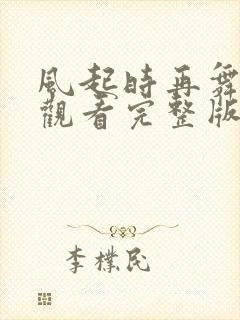 風起時再舞
觀看完整版
李樸民